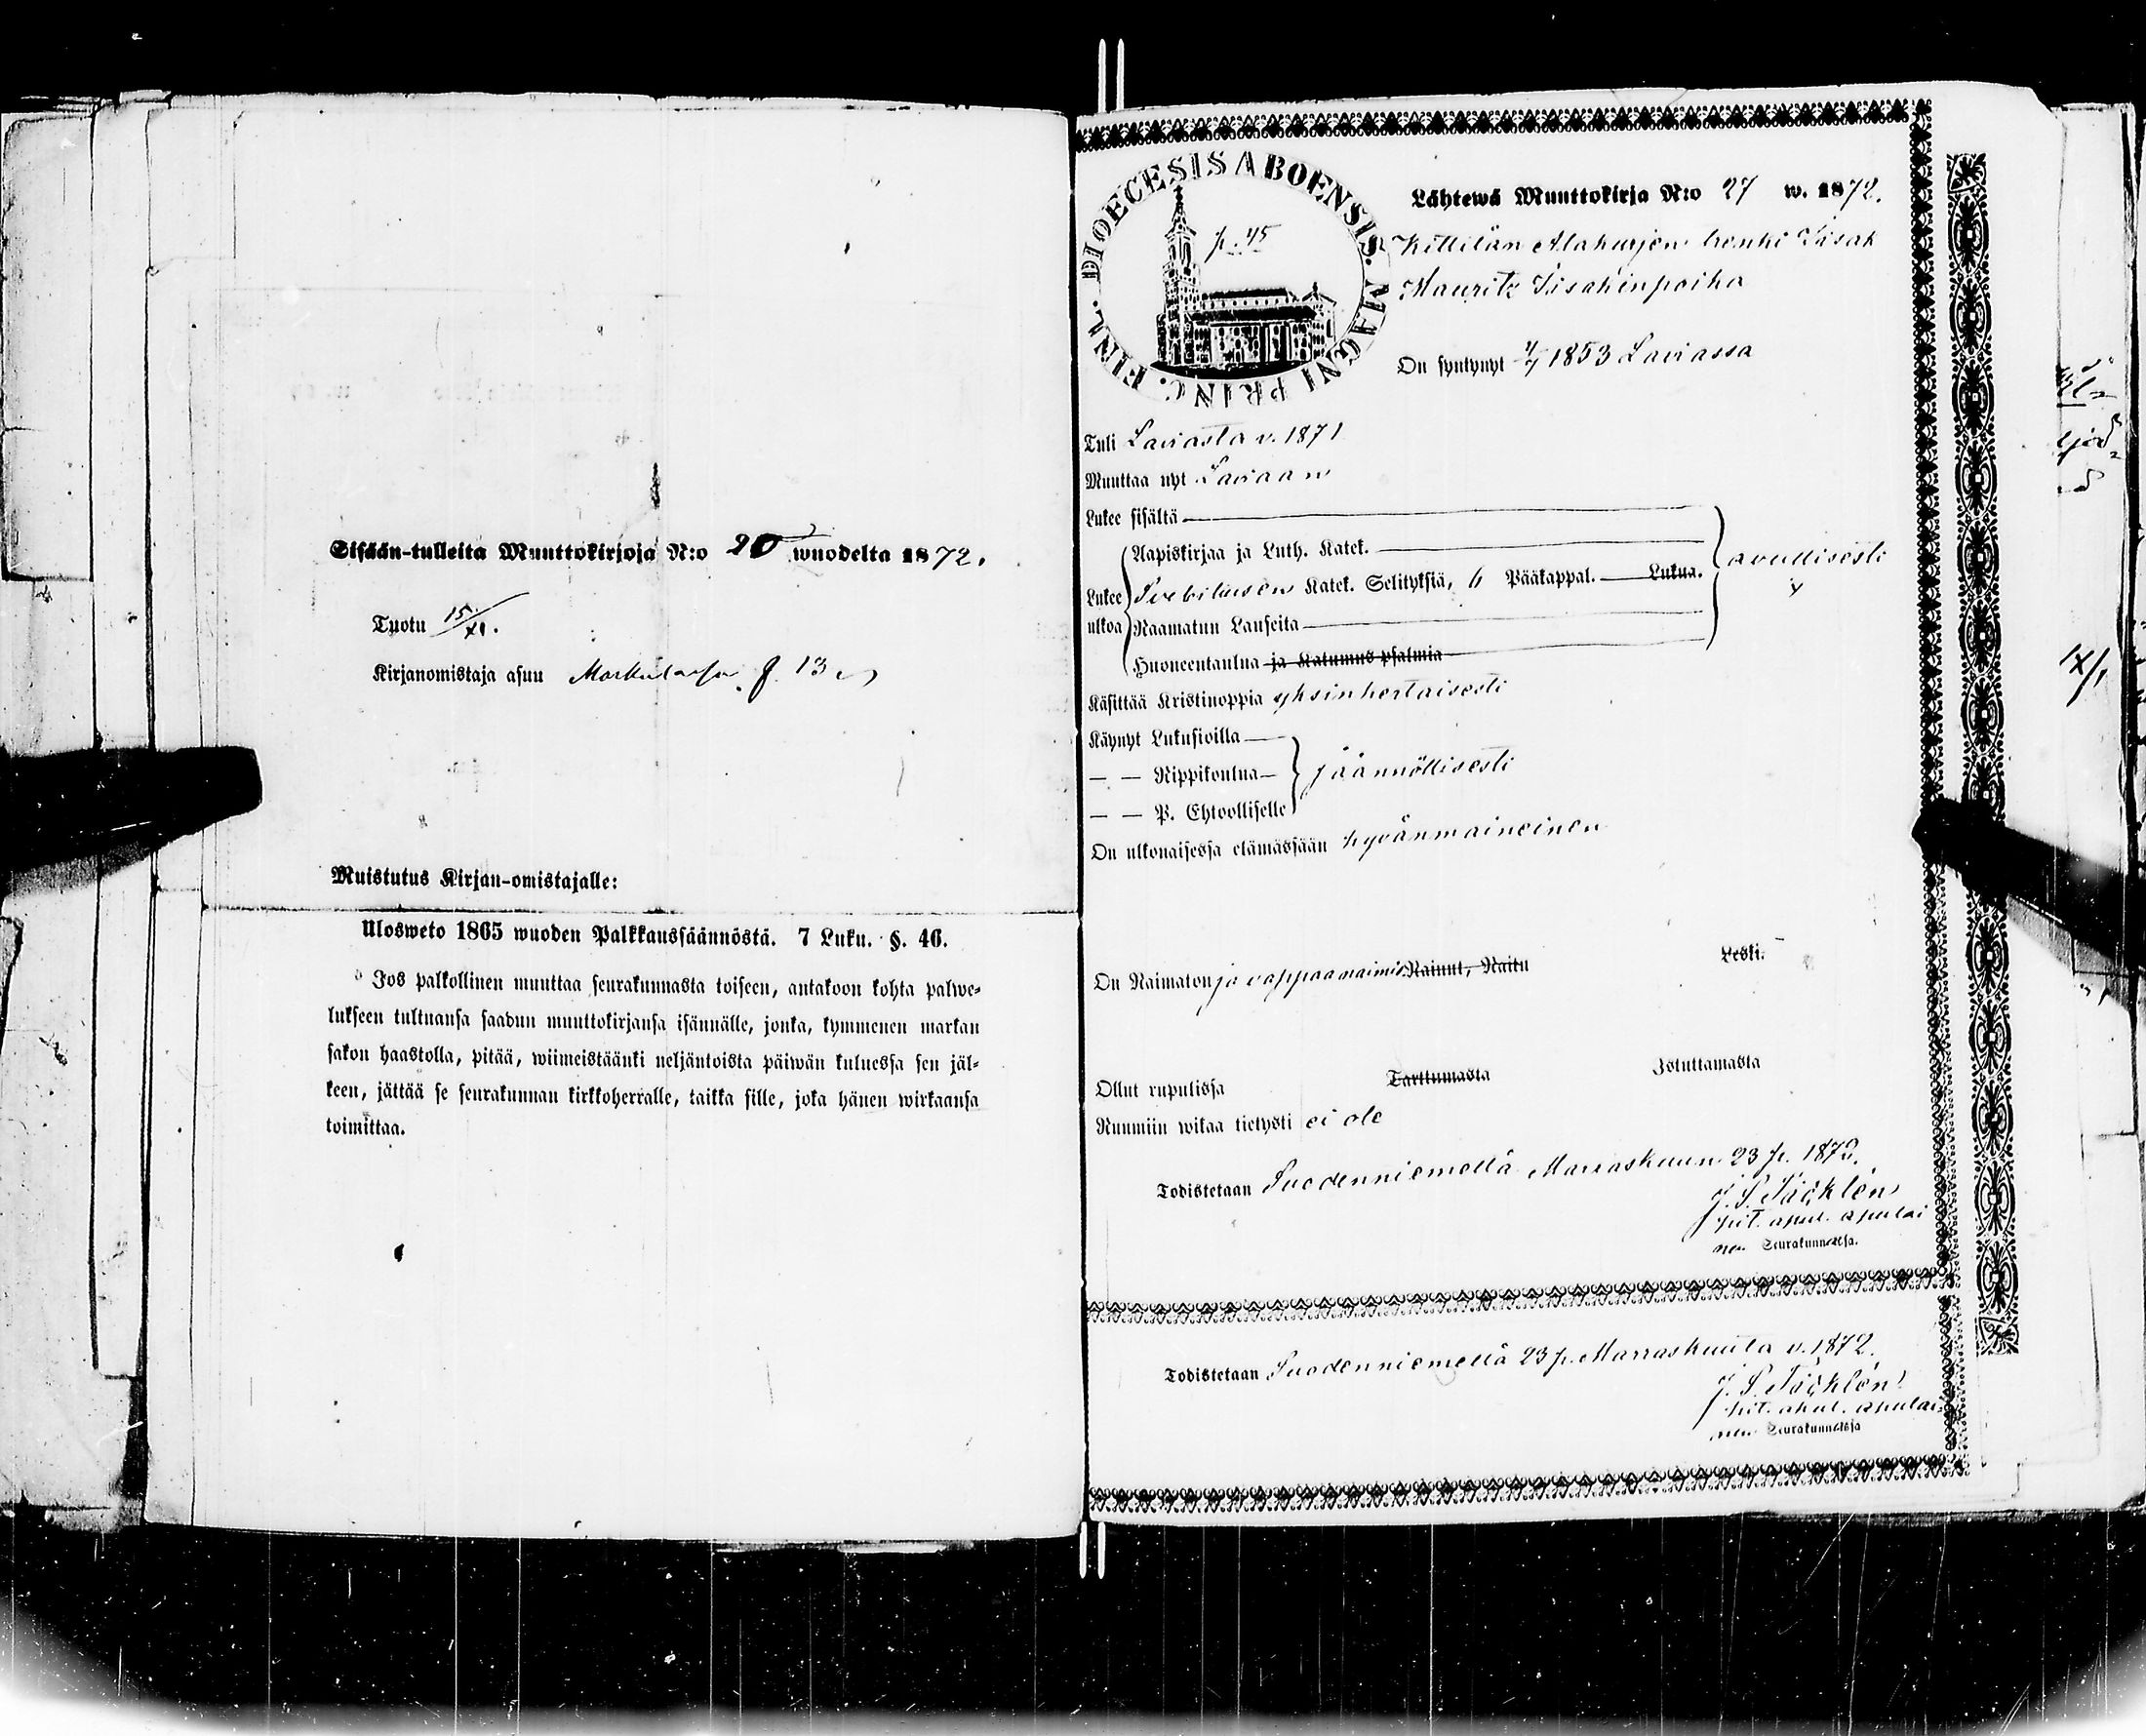 Sisään-tulleita Muuttokirjoja N:o 20 wuodelta 1872.
Tuotu 15/XI.
Kirjanomistaja asuu f. 13
Muistutus Kirjan-omistajalle:
Ulosweto 1865 wuoden Palkkaussäännöstä. 7 Luku. §. 46.
Jos palkollinen muuttaa seurakunnasta toiseen, antakoon kohta palwe-
lukseen tultuansa saadun muuttokirjansa isännälle, jonka, kymmenen markan
sakon haastolla, pitää, wiimeistäänki neljäntoista päiwän kuluessa sen jäl-
keen, jättää se seurakunnan kirkkoherralle, taikka sille, joka hänen wirkaansa
toimittaa.
DIOECESIS ABOENSIS. MAGNI PRINC. FINL.
p. 45
Lähtewä Muuttokirja N:o 27 w. 1872.
Kittilän Alakurjen renki Iisak
Mauritz Iisakinpoika
On syntynyt 4/7 1853 Laviassa
Tuli Laviasta v. 1871
Muuttaa nyt Laviaan
Lukee sisältä
Lukee ulkoa
Aapiskirjaa ja Luth. Katek.
Svebiliusen Katek. Selityksiä, 6 Pääkappal. Lukua.
Raamatun Lauseita
Huoneentaulua ja Katumus psalmia
avullisesti
Käsittää Kristinoppia yksinkertaisesti
Käynyt Lukusioilla
— — Rippikoulua
— — P. Ehtoolliselle
jäännöllisesti
On ulkonaisessa elämässään hyvänmaineinen
On Naimaton ja vappaa naimis. Nainut, Naitu Leski.
Ollut rupulissa Tarttumasta Istuttamasta
Ruumiin wikaa tietysti ei ole
Todistetaan Suodenniemellä Marraskuun 23 p. 1872.
J. S. Täcklén
pit. apul. apulai
nen Seurakunnassa.
Todistetaan Suodenniemellä 23 p. Marraskuuta v. 1872.
J. S. Täcklén
pit. apul. apulai
nen Seurakunnassa